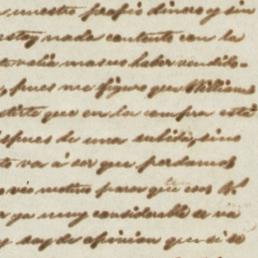 , nuestro propio dinero y sin
estoy nada contento con la
valia mas no haber vendido-
, pues me figuro que William
que en la compra está
despues de una subida, sino
va á ser que perdamos
motivo para que con
ya muy considerable se va
y soy de opinion que si se